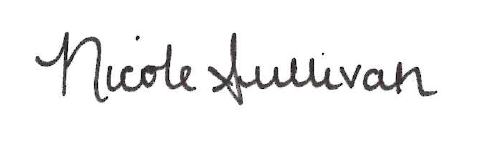 Nicole Sullivan